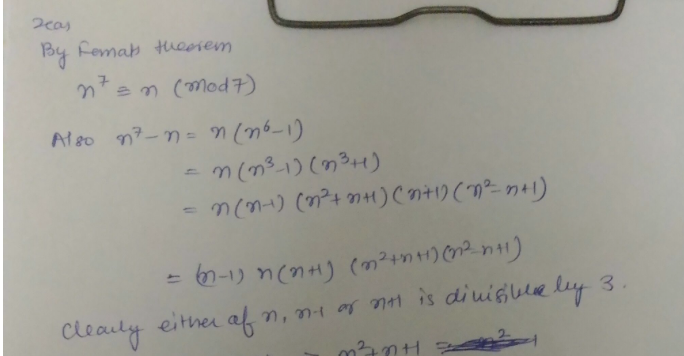 By Fermats theorem
n⁷ ≡ n (mod 7)
Also n⁷ - n = n (n⁶-1)
= n (n³-1) (n³+1)
= n(n-1) (n²+n+1) (n+1) (n²-n+1)
= (n-1) n(n+1) (n²+n+1)(n²-n+1)
Clearly either of n, n-1 or n+1 is divisible by 3.
= n²+n+1 =